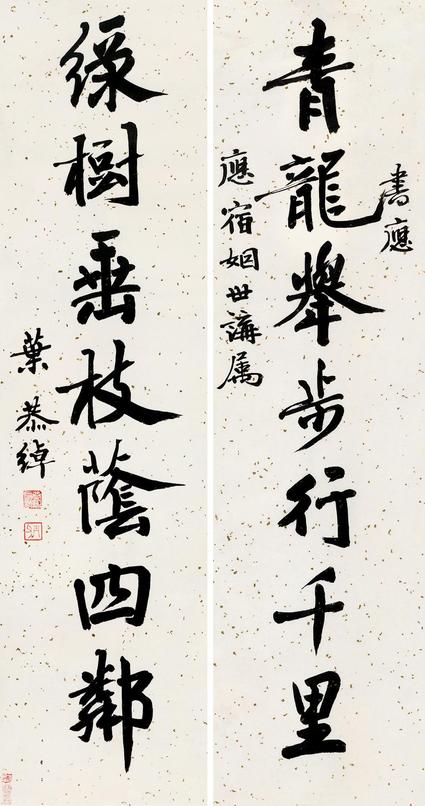 書應
青龍舉步行千里
應宿姻世講属
綠樹垂枝蔭四鄰
葉恭綽